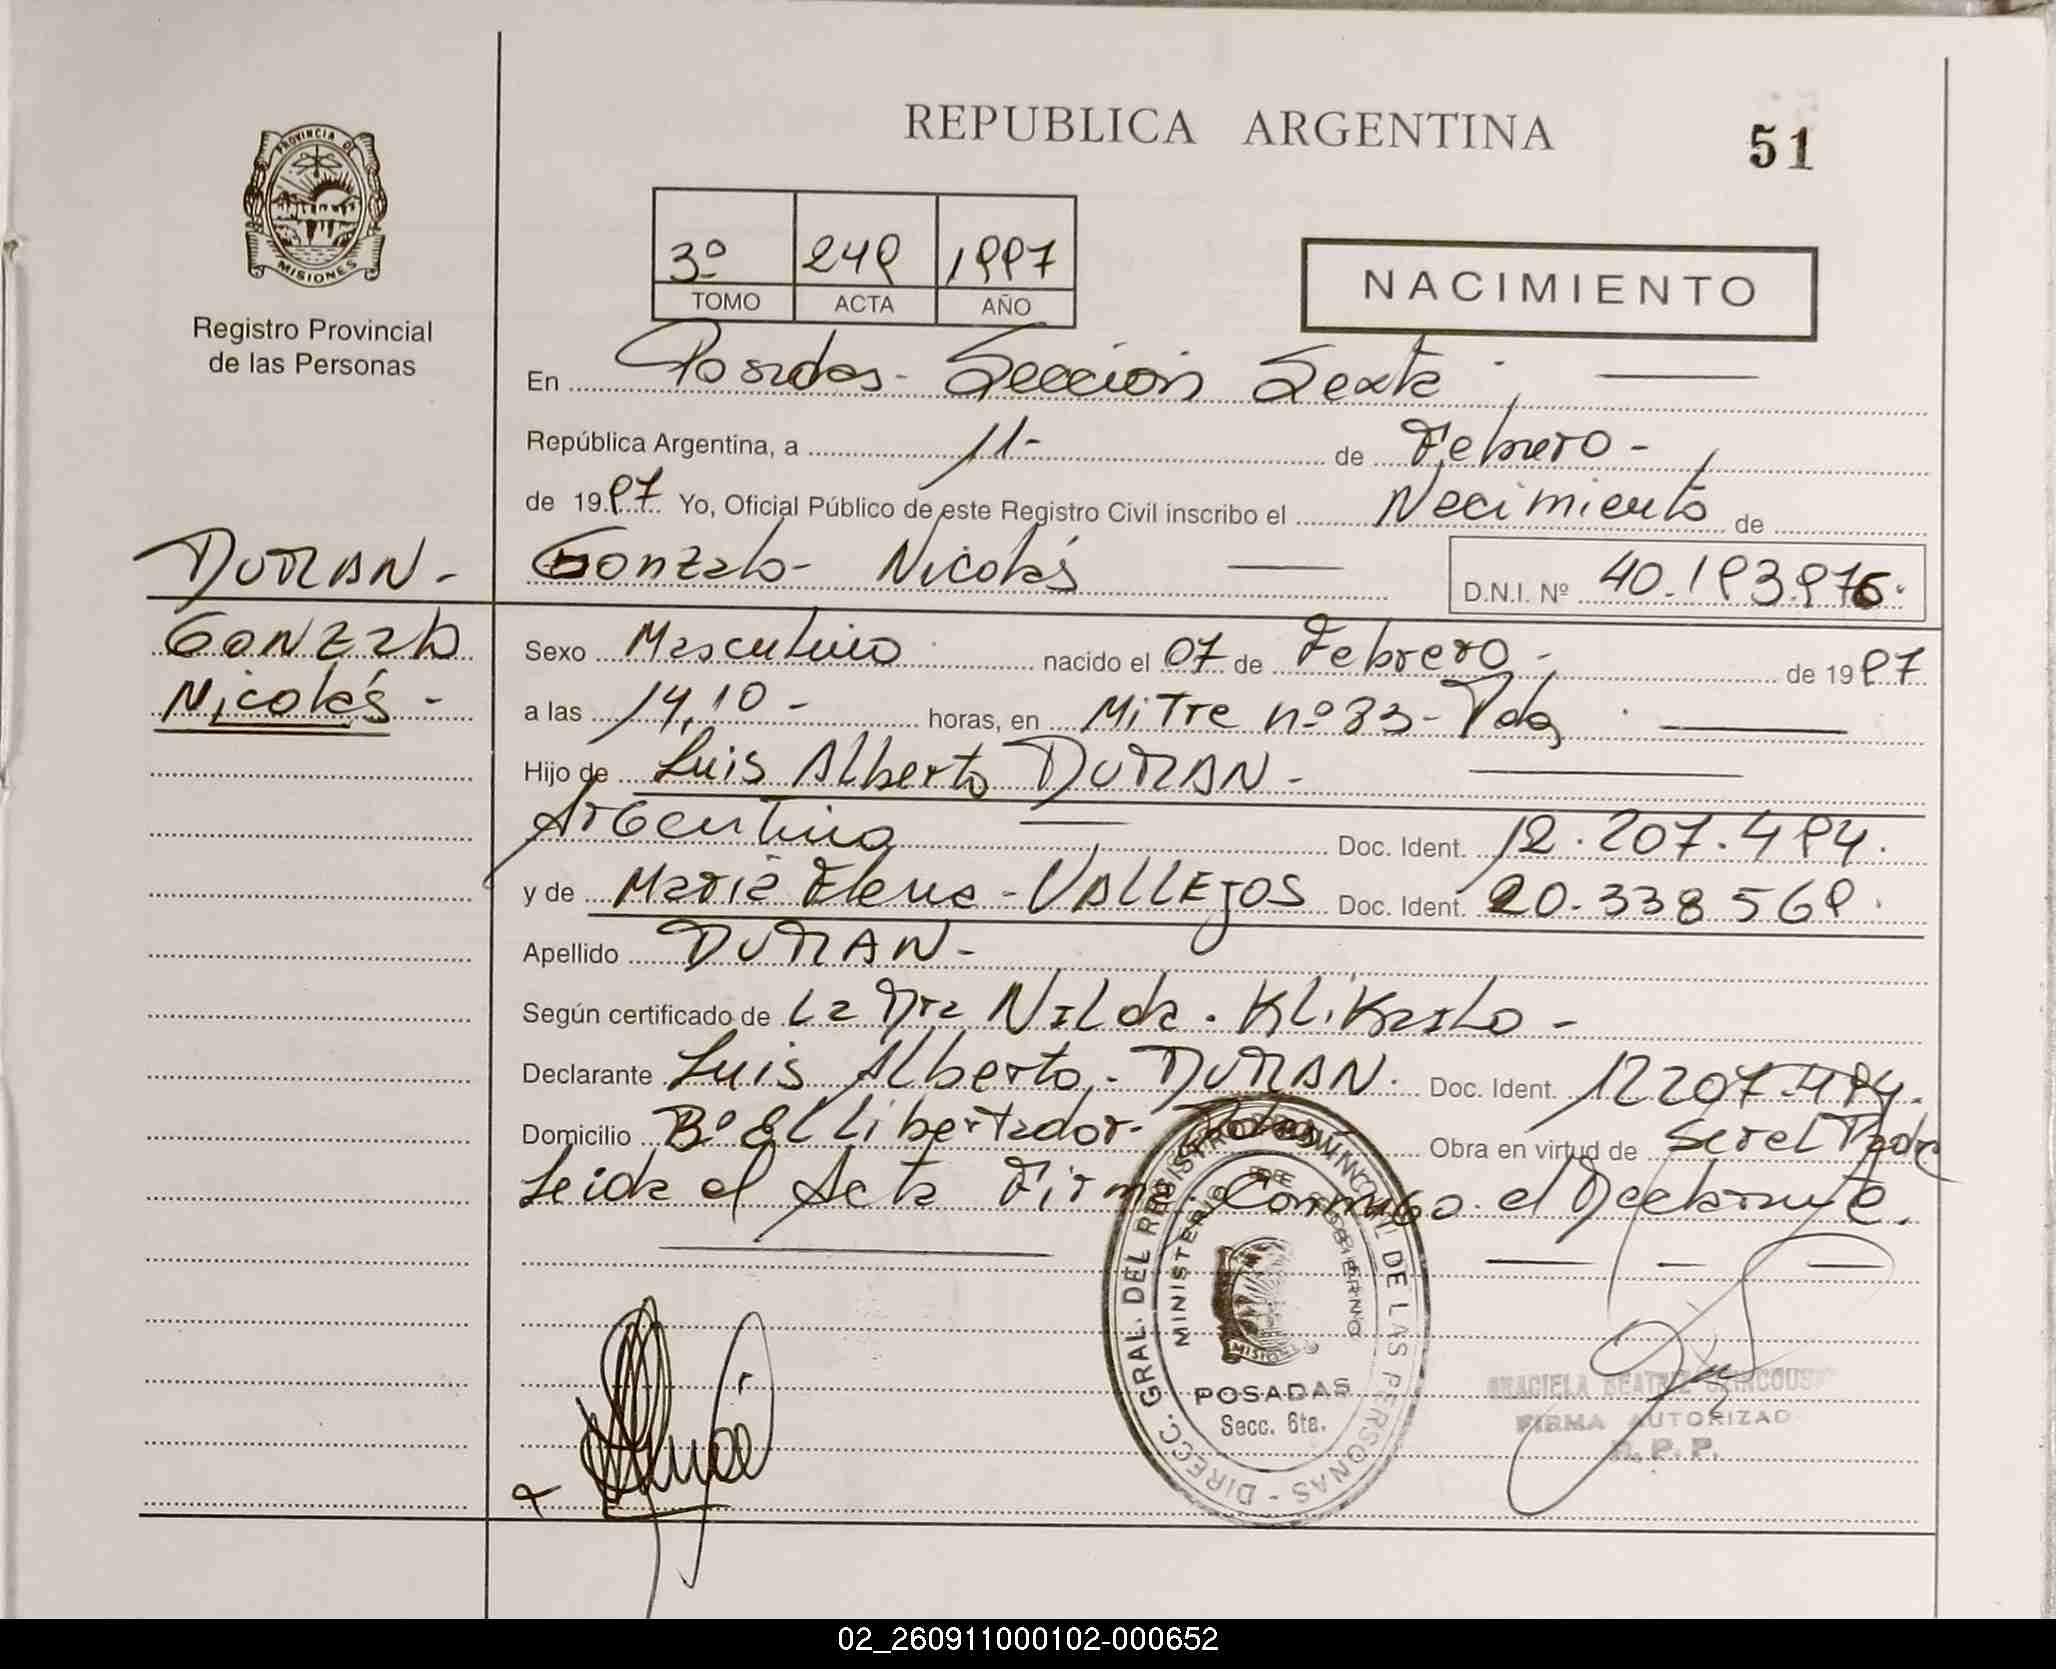 REPUBLICA ARGENTINA
51
PROVINCIA DE
MISIONES
Registro Provincial
de las Personas
3º 249 1997
TOMO ACTA AÑO
NACIMIENTO
En Posadas - Sección Sexta
República Argentina, a 11- de Febrero -
de 1997 Yo, Oficial Público de este Registro Civil inscribo el Nacimiento de
DURAN -
Gonzalo Nicolás -
Gonzalo - Nicolás
D.N.I. Nº 40.193.976.
Sexo Masculino nacido el 07 de Febrero - de 1997
a las 14,10 - horas, en Mitre nº 83 - Pdas
Hijo de Luis Alberto DURAN -
Argentina Doc. Ident. 12.207.494.
y de Maria Elena - VALLEJOS Doc. Ident. 20.338.569.
Apellido DURAN -
Según certificado de La Dra Nilda
Declarante Luis Alberto - DURAN. Doc. Ident. 12207.494.
Domicilio Bº El Libertador - Pdas Obra en virtud de ser el Padre
Leida el Acta Firma Conmigo el Declarante.
DIRECC. GRAL. DEL REGISTRO PROVINCIAL DE LAS PERSONAS
MINISTERIO DE GOBIERNO
MISIONES
POSADAS
Secc. 6ta.
GRACIELA BEATRIZ
FIRMA AUTORIZAD
R. P. P.
02_260911000102-000652